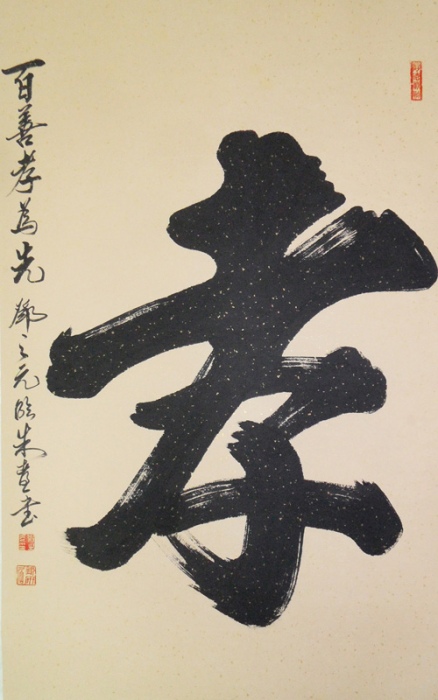 孝
百善孝為先
鄧之元臨朱熹書